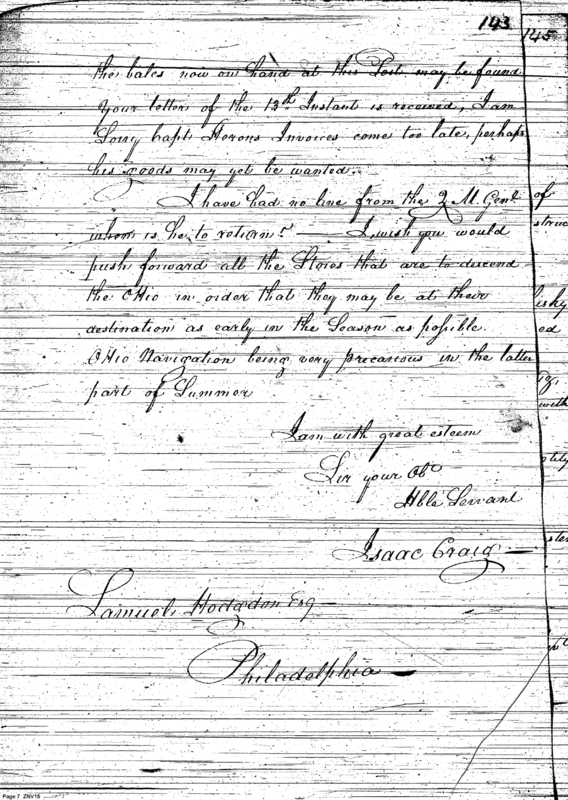 143
145
the bales now on hand at this Post may be found
Your letter of the 13th Instant is received, I am
Sorry Capt Herons Invoices come too late, perhaps
his goods may yet be wanted.
I have had no line from the Q M. Genl
when is he to return? — I wish you would
push forward all the Stores that are to descend
the OHio in order that they may be at their
destination as early in the Season as possible.
OHio Navigation being very precarious in the latter
part of Summer
I am with great esteem
Sir your Obt
Hble Servant
Isaac Craig —
Samuel Hodgdon Esq
Philadelphia —
of
ed
with
Page 7 ZNV16